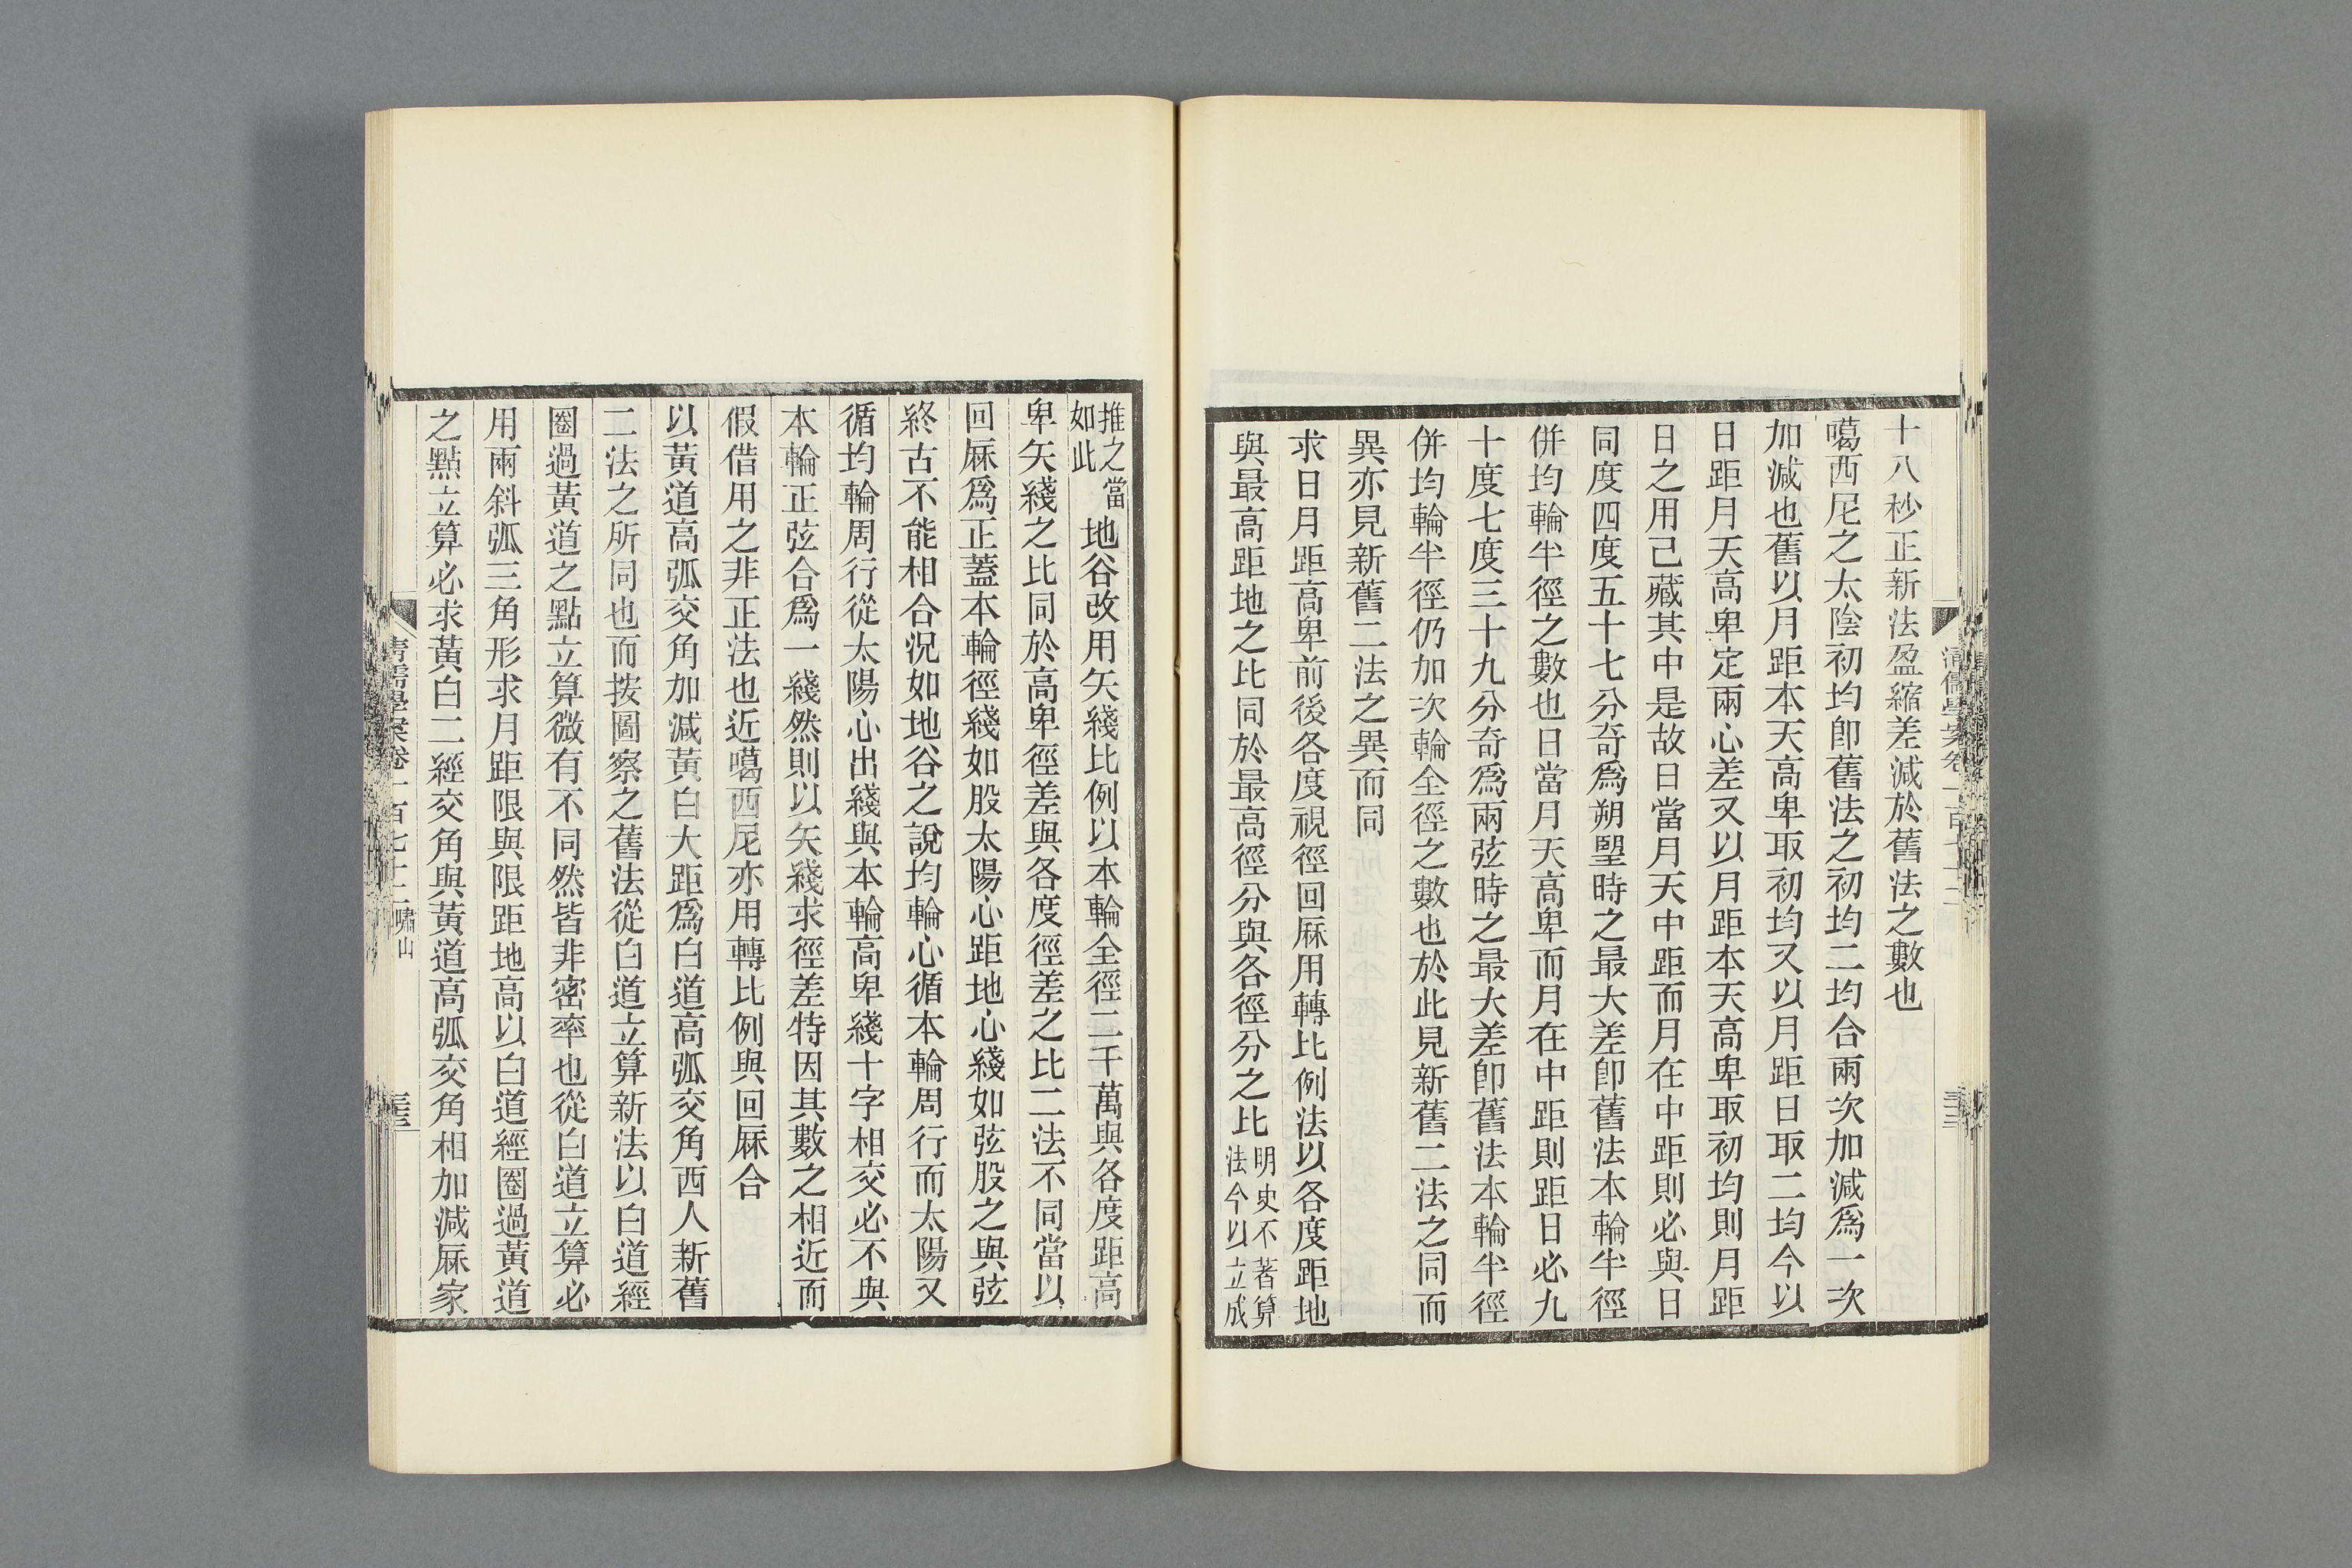 十八秒正新法盈縮差減於舊法之數也
噶西尼之太陰初均卽舊法之初均二均合兩次加減爲一次
加減也舊以月距本天高卑取初均又以月距日取二均今以
日距月天高卑定兩心差又以月距本天高卑取初均則月距
日之用己藏其中是故日當月天中距而月在中距則必與日
同度四度五十七分奇爲朔朢時之最大差卽舊法本輪半徑
併均輪半徑之數也日當月天高卑而月在中距則距日必九
十度七度三十九分奇爲兩弦時之最大差卽舊法本輪半徑
併均輪半徑仍加次輪全徑之數也於此見新舊二法之同而
異亦見新舊二法之異而同
求日月距高卑前後各度視徑回厤用轉比例法以各度距地
與最高距地之比同於最高徑分與各徑分之比明史不著算法今以立成
推之當如此地谷改用矢綫比例以本輪全徑二千萬與各度距高
卑矢綫之比同於高卑徑差與各度徑差之比二法不同當以
回厤爲正蓋本輪徑綫如股太陽心距地心綫如弦股之與弦
終古不能相合況如地谷之說均輪心循本輪周行而太陽又
循均輪周行從太陽心出綫與本輪高卑綫十字相交必不與
本輪正弦合爲一綫然則以矢綫求徑差特因其數之相近而
假借用之非正法也近噶西尼亦用轉比例與回厤合
以黃道高弧交角加減黃白大距爲白道高弧交角西人新舊
二法之所同也而按圖察之舊法從白道立算新法以白道經
圈過黃道之點立算微有不同然皆非密率也從白道立算必
用兩斜弧三角形求月距限與限距地高以白道經圈過黃道
之點立算必求黃白二經交角與黃道高弧交角相加減厤家
清儒學案卷一百七十二 嘯山